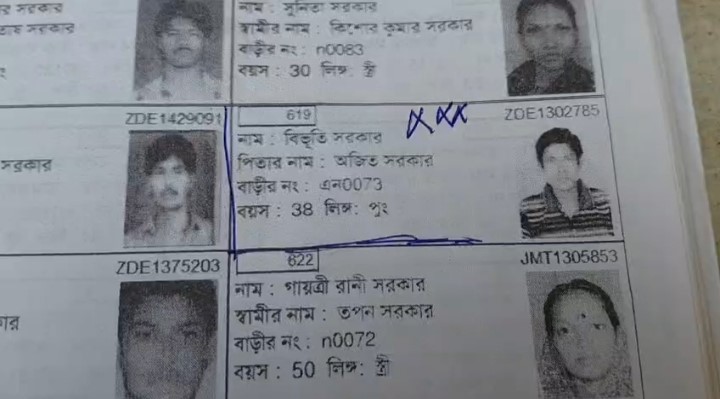 র সরকার
নাম : সুনিতা সরকার
স্বামীর নাম : কিশোর কুমার সরকার
বাড়ীর নং : n0083
বয়স : 30 লিঙ্গ : স্ত্রী
ZDE1429091
619
xxx
ZDE1302785
নাম : বিভূতি সরকার
সরকার
পিতার নাম : অজিত সরকার
বাড়ীর নং : এন0073
বয়স : 38 লিঙ্গ : পুং
ZDE1375203
622
JMT1305853
নাম : গায়ত্রী রানী সরকার
স্বামীর নাম : তপন সরকার
বাড়ীর নং : n0072
বয়স : 50 লিঙ্গ : স্ত্রী